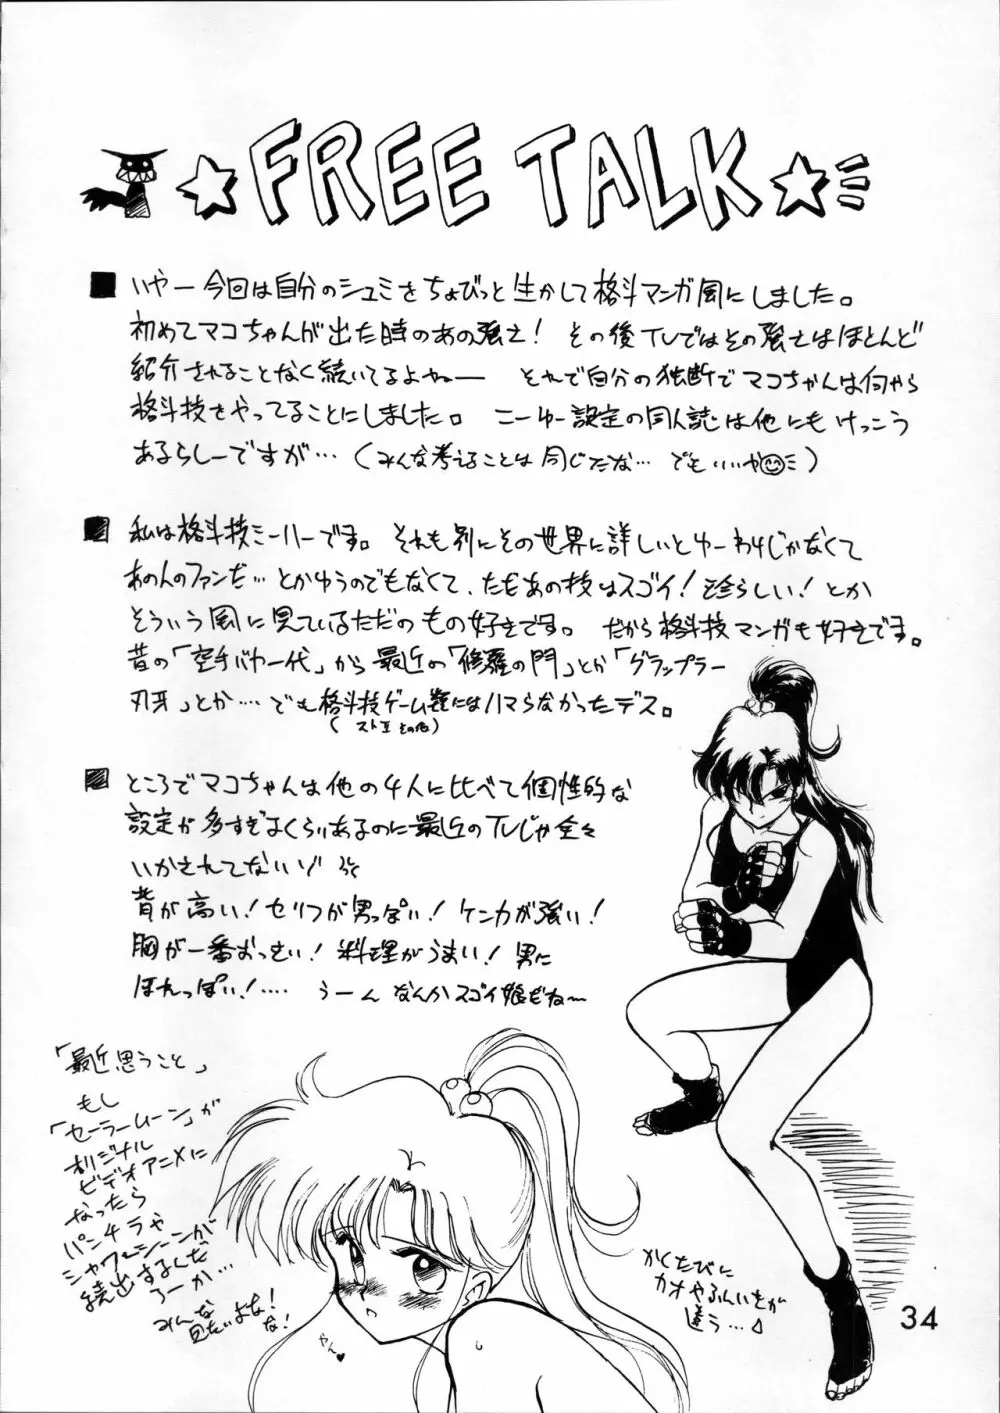 FREE TALK
いやー今回は自分のシュミをちょびっと生かして格斗マンガ風にしました。
初めてマコちゃんが出た時のあの強さ! その後TVではその強さはほとんど
紹介されることなく続いてるよねー それで自分の独断でマコちゃんは何やら
格斗技をやってることにしました。 こーゆー設定の同人誌は他にもけっこう
あるらしーですが…(みんな考えることは同じだな… でもいいや)
私は格斗技ミーハーです。 それも別にその世界に詳しいとゆーわけじゃなくて
あの人のファンだ…とかゆうのでもなくて、ただあの技はスゴイ!珍らしい!とか
そういう風に見ているただのもの好きです。 だから格斗技マンガも好きです。
昔の「空手バカ一代」から最近の「修羅の門」とか「グラップラー
刃牙」とか…でも格斗技ゲーム類にはハマらなかったデス。
(ストⅡその他)
ところでマコちゃんは他の4人に比べて個性的な
設定が多すぎるくらいあるのに最近のTVじゃ全々
いかされてないゾ
背が高い!セリフが男っぽい!ケンカが強い!
胸が一番おっきい!料理がうまい!男に
ほれっぽい!…… うーんなんかスゴイ娘だね〜
「最近思うこと」
もし
「セーラームーン」が
オリジナル
ビデオアニメに
なったら
パンチラや
シャワーシーンが
続出するんだ
ろーか…
みんな
見たいよな!
な!
やん♥
かくたびに
カオやふんいきが
違う…
34